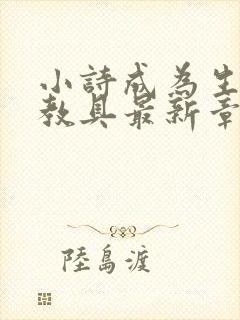 小詩成為生
教具最新章
陸島渡